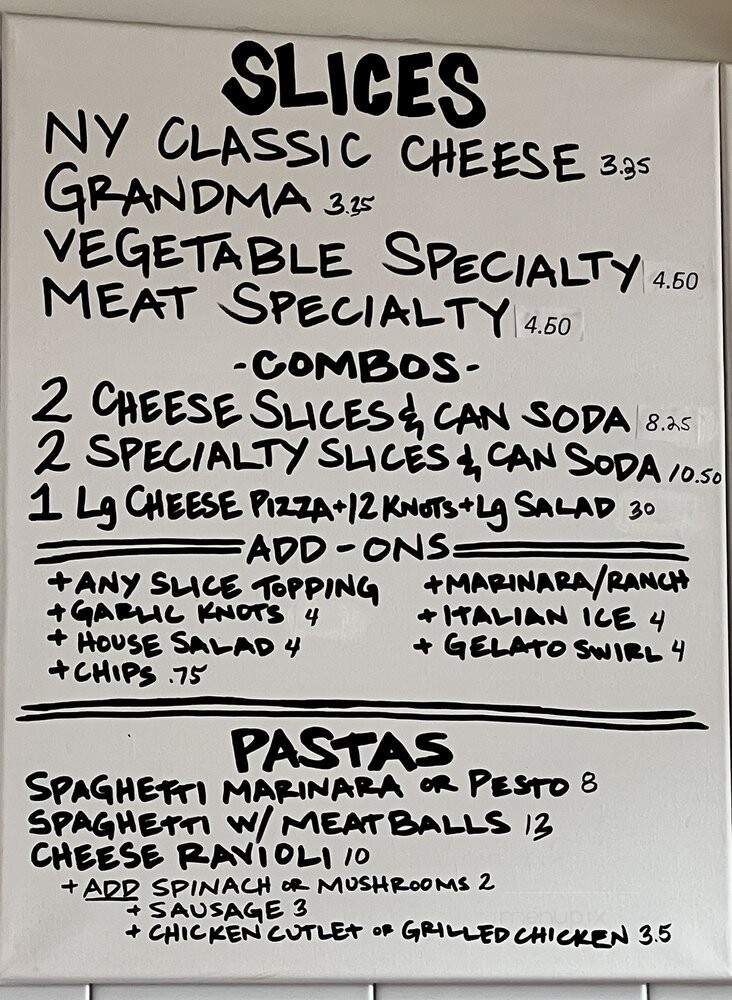 SLICES
NY CLASSIC CHEESE 3.25
GRANDMA 3.25
VEGETABLE SPECIALTY 4.50
MEAT SPECIALTY 4.50
-COMBOS-
2 CHEESE SLICES & CAN SODA 8.25
2 SPECIALTY SLICES & CAN SODA 10.50
1 Lg CHEESE PIZZA+12 KNOTS+Lg SALAD 30
ADD-ONS
+ANY SLICE TOPPING
+GARLIC KNOTS 4
+ HOUSE SALAD 4
+CHIPS .75
+MARINARA/RANCH
+ITALIAN ICE 4
+ GELATO SWIRL 4
PASTAS
SPAGHETTI MARINARA OR PESTO 8
SPAGHETTI W/ MEATBALLS 13
CHEESE RAVIOLI 10
+ADD SPINACH OR MUSHROOMS 2
+ SAUSAGE 3
+ CHICKEN CUTLET OR GRILLED CHICKEN 3.5